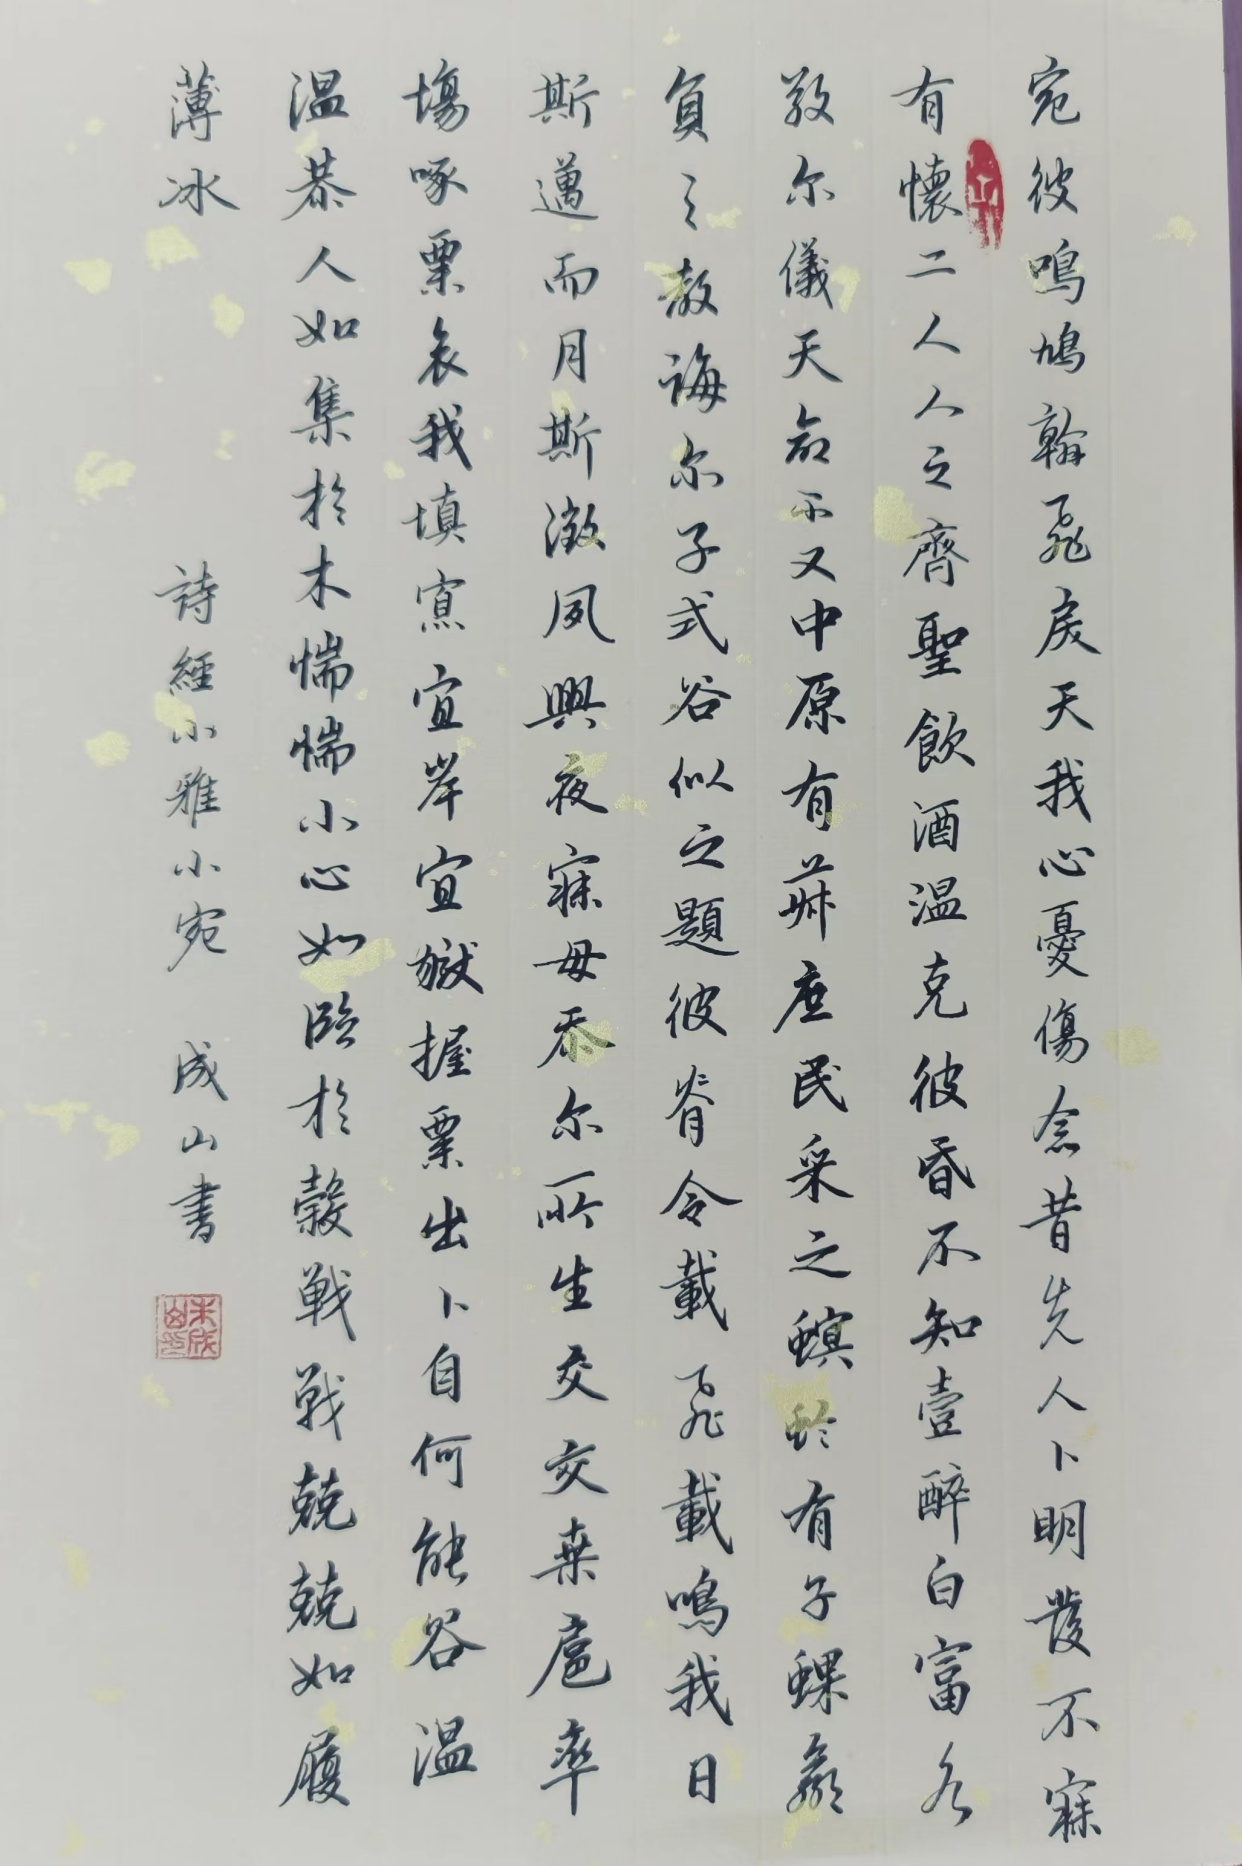 宛彼鳴鳩翰飛戾天我心憂傷念昔先人卜明發不寐
有懷二人人之齊聖飲酒温克彼昏不知壹醉白富各
敬尔儀天命不又中原有菽庶民采之螟蛉有子蜾蠃
負之教誨尔子式谷似之題彼脊令載飛載鳴我日
斯邁而月斯澂夙興夜寐毋忝尔所生交交桑扈率
場啄粟哀我填寡宜岸宜獄握粟出卜自何能谷温
温恭人如集於木惴惴小心如臨於穀戰戰兢兢如履
薄冰
詩經小雅小宛 成山書
朱成山印